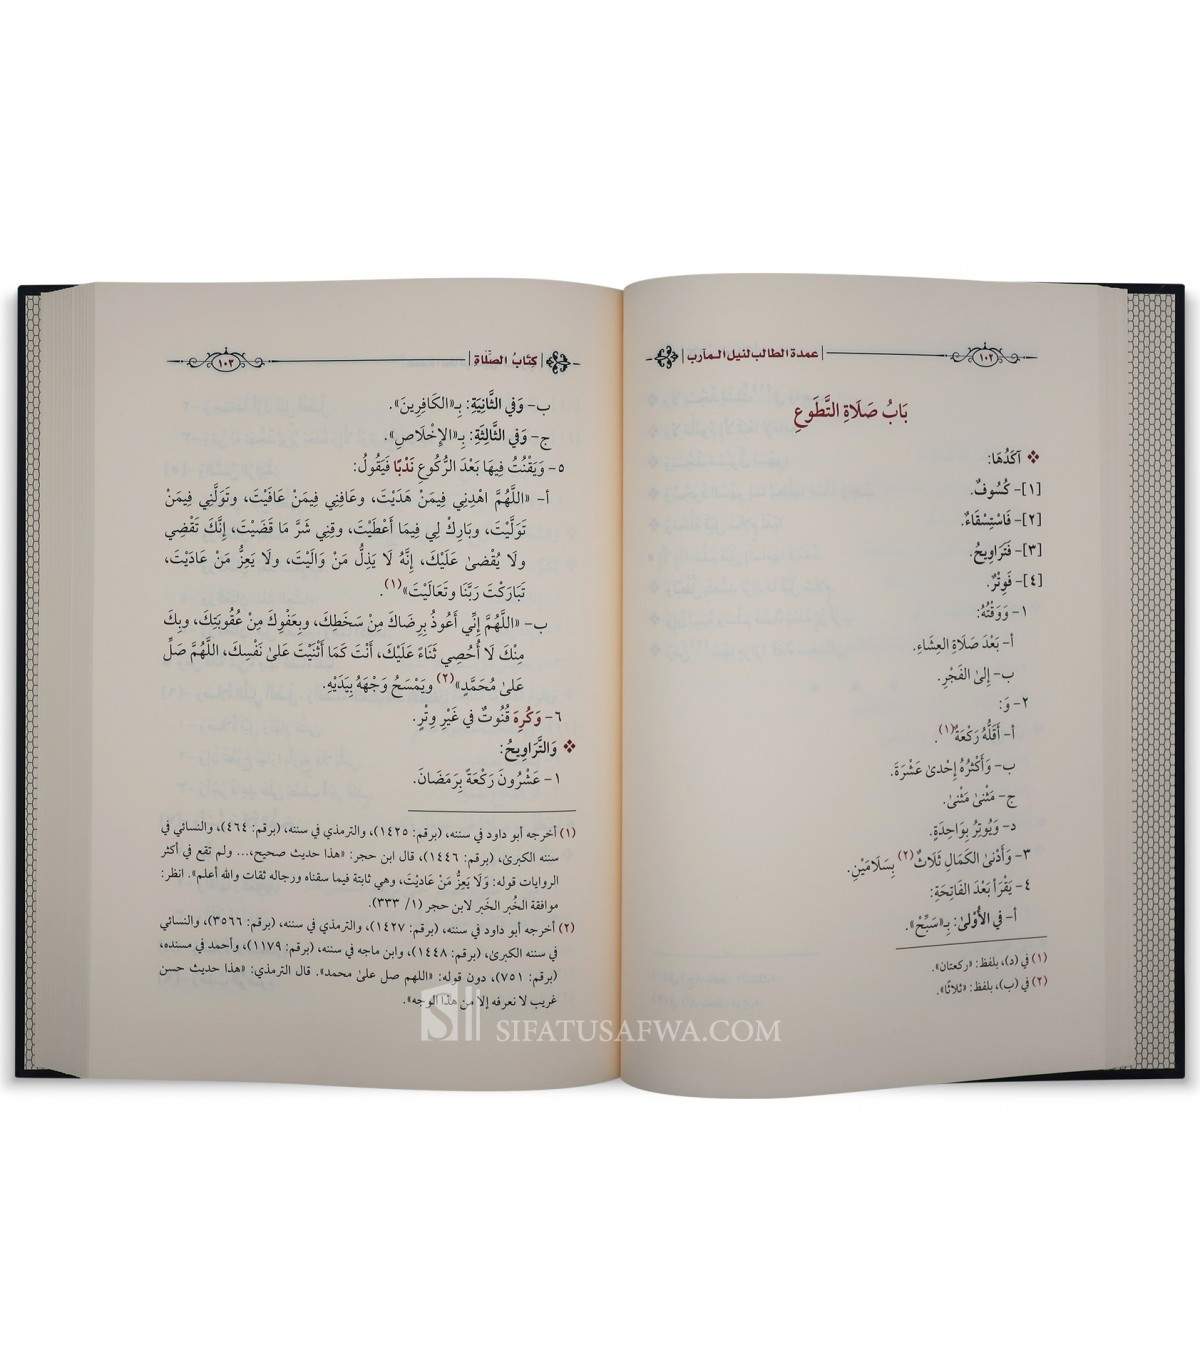 ١٠٢
عمدة الطالب لنيل المآرب
بَابُ صَلَاةِ التَّطَوعِ
❖ آكَدُهَا:
[١]- كُسُوفٌ.
[٢]- فَاسْتِسْقَاءٌ.
[٣]- فَتَرَاوِيحُ.
[٤]- فَوِتْرٌ.
١- وَوَقْتُهُ:
أ- بَعْدَ صَلَاةِ العِشَاءِ.
ب- إِلىٰ الفَجْرِ.
٢- وَ:
أ- أَقَلُّهُ رَكْعَةٌ(١).
ب- وَأَكْثَرُهُ إِحْدىٰ عَشْرَةَ.
ج- مَثْنىٰ مَثْنىٰ.
د- وَيُوتِرُ بِوَاحِدَةٍ.
٣- وَأَدْنىٰ الكَمَالِ ثَلَاثٌ(٢) بِسَلَامَيْنِ.
٤- يَقْرَأُ بَعْدَ الفَاتِحَةِ:
أ- في الأُوْلىٰ: بِـ«سَبِّحْ».
(١) في (د)، بلفظ: «ركعتان».
(٢) في (ب)، بلفظ: «ثلاثًا».
كِتَابُ الصَّلَاةِ
١٠٣
ب- وَفي الثَّانِيَةِ: بِـ«الكَافِرِينَ».
ج- وَفي الثَّالِثَةِ: بِـ«الإِخْلَاصِ».
٥- وَيَقْنُتُ فِيهَا بَعْدَ الرُّكُوعِ نَدْبًا فَيَقُولُ:
أ- «اللَّهُمَّ اهْدِنِي فِيمَنْ هَدَيْتَ، وعَافِنِي فِيمَنْ عَافَيْتَ، وتَوَلَّنِي فِيمَنْ
تَوَلَّيْتَ، وبَارِكْ لِي فِيمَا أَعْطَيْتَ، وقِنِي شَرَّ مَا قَضَيْتَ، إِنَّكَ تَقْضِي
ولَا يُقْضىٰ عَلَيْكَ، إِنَّهُ لَا يَذِلُّ مَنْ وَالَيْتَ، ولَا يَعِزُّ مَنْ عَادَيْتَ،
تَبَارَكْتَ رَبَّنَا وتَعَالَيْتَ»(١).
ب- «اللَّهُمَّ إِنِّي أَعُوذُ بِرِضَاكَ مِنْ سَخَطِكَ، وبِعَفْوِكَ مِنْ عُقُوبَتِكَ، وبِكَ
مِنْكَ لَا أُحْصِي ثَنَاءً عَلَيْكَ، أَنْتَ كَمَا أَثْنَيْتَ عَلىٰ نَفْسِكَ، اللَّهُمَّ صَلِّ
عَلىٰ مُحَمَّدٍ»(٢) ويَمْسَحُ وَجْهَهُ بِيَدَيْهِ.
٦- وَكُرِهَ قُنُوتٌ في غَيْرِ وِتْرٍ.
❖ وَالتَّرَاوِيحُ:
١- عَشْرُونَ رَكْعَةً بِرَمَضَانَ.
(١) أخرجه أبو داود في سننه، (برقم: ١٤٢٥)، والترمذي في سننه، (برقم: ٤٦٤)، والنسائي في
سننه الكبرىٰ، (برقم: ١٤٤٦)، قال ابن حجر: «هذا حديث صحيح،... ولم تقع في أكثر
الروايات قوله: وَلَا يَعِزُّ مَنْ عَاديْتَ، وهي ثابتة فيما سقناه ورجاله ثقات والله أعلم». انظر:
موافقة الخُبر الخَبر لابن حجر (١/ ٣٣٣).
(٢) أخرجه أبو داود في سننه، (برقم: ١٤٢٧)، والترمذي في سننه، (برقم: ٣٥٦٦)، والنسائي
في سننه الكبرىٰ، (برقم: ١٤٤٨)، وابن ماجه في سننه، (برقم: ١١٧٩)، وأحمد في مسنده،
(برقم: ٧٥١)، دون قوله: «اللهم صل علىٰ محمد». قال الترمذي: «هذا حديث حسن
غريب لا نعرفه إلا من هذا الوجه».
SIFATUSAFWA.COM